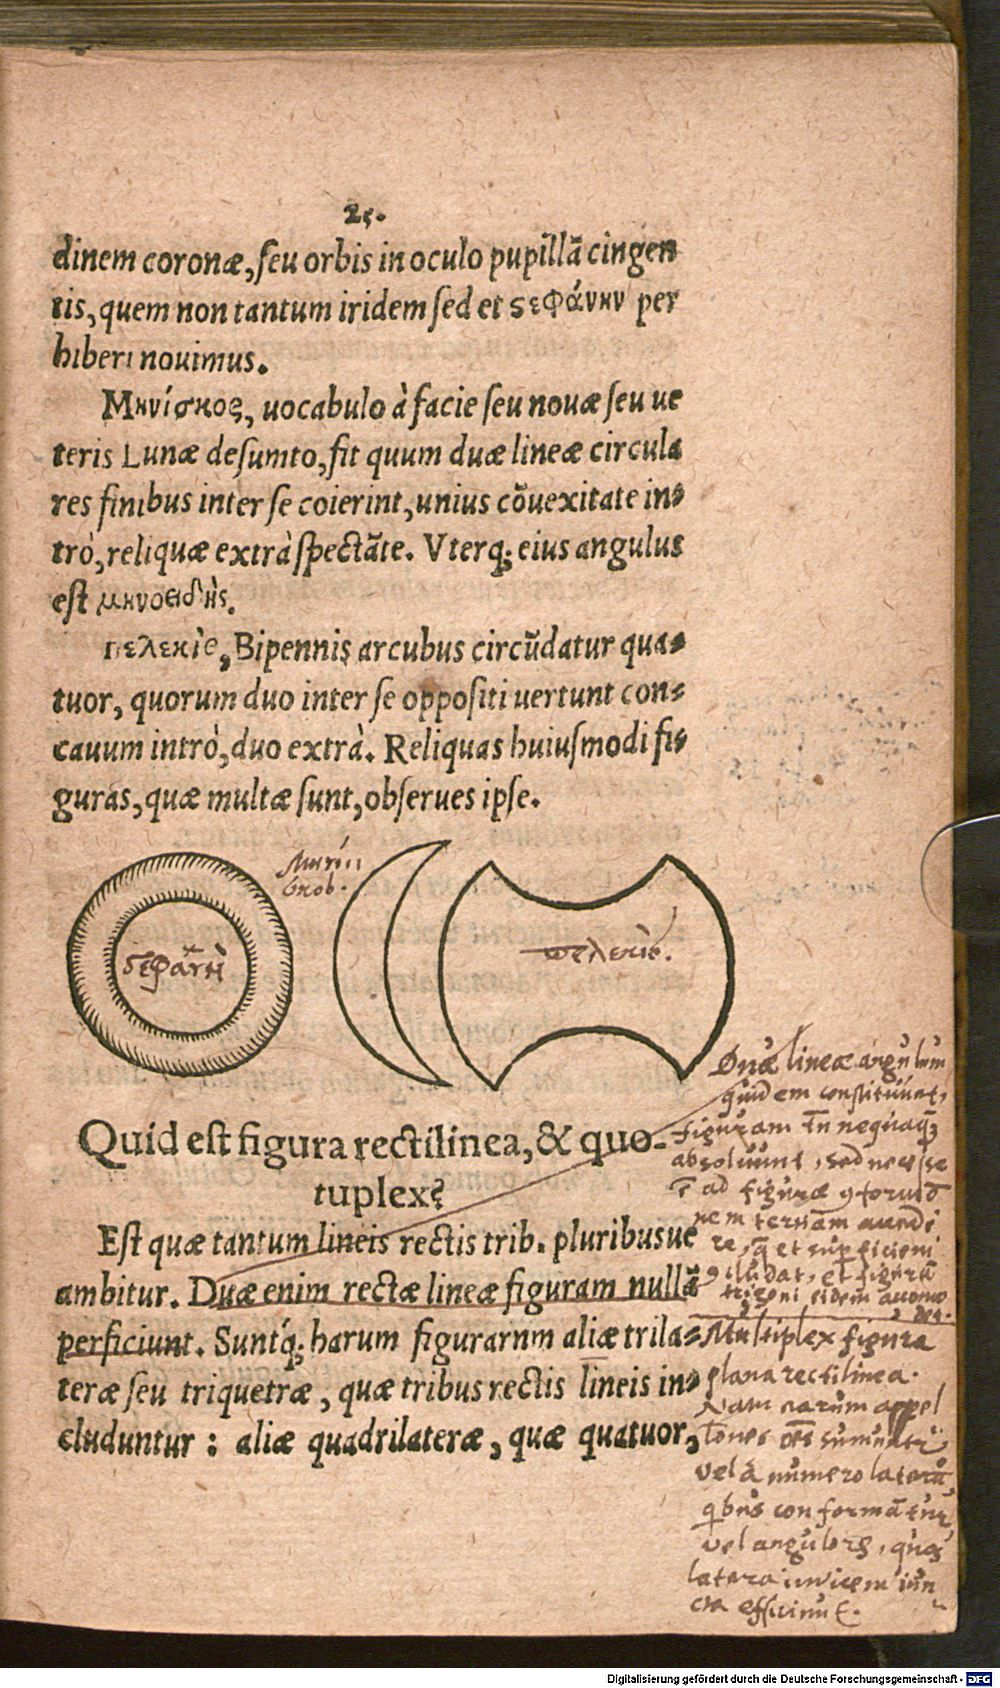 25.
dinem coronæ, seu orbis in oculo pupillã cingen
tis, quem non tantum iridem sed et ςεφάνην per
hiberi nouimus.
Μηνίσκος, uocabulo à facie seu nouæ seu ue
teris Lunæ desumto, fit quum duæ lineæ circula
res finibus inter se coierint, unius cõuexitate in-
trò, reliquæ extrà spectãte. Vterq; eius angulus
est μηνοειδὴς.
πελεκὶς, Bipennis arcubus circũdatur qua-
tuor, quorum duo inter se oppositi uertunt con-
cauum intrò, duo extrà. Reliquas huiusmodi fi-
guras, quæ multæ sunt, obserues ipse.
πελεκὶς.
Quid est figura rectilinea, & quo-
tuplex?
Est quæ tantum lineis rectis trib. pluribusue
ambitur. Duæ enim rectæ lineæ figuram nullã
perficiunt. Suntq́; harum figurarnm aliæ trila-
teræ seu triquetræ, quæ tribus rectis lineis in-
cluduntur: aliæ quadrilateræ, quæ quatuor,
Duæ lineæ angulum
quidem constituunt,
figuram tñ nequaq̃
absoluunt, sed necesse
ad figuræ
nem tertiam
re, et superficiem
cludat, et figurã
trigoni eidem
Multiplex figura
plana rectilinea.
Nam earum appel
tiones sumuntr
vel à numero laterũ
qbus conformãtur
vel angulors, quos
latera invicem iun
cta efficiunt.
Digitalisierung gefördert durch die Deutsche Forschungsgemeinschaft - DFG